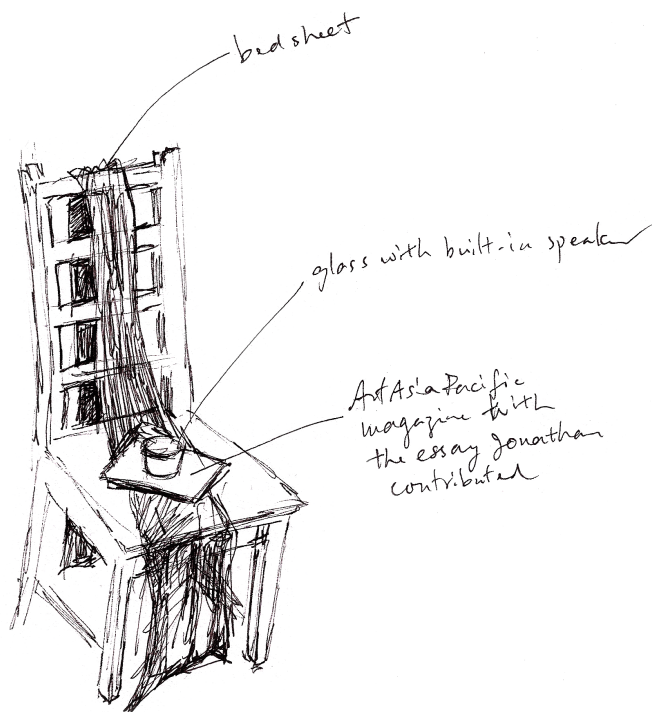 bedsheet
glass with built-in speaker
ArtAsiaPacific
magazine with
the essay Jonathan
contributed